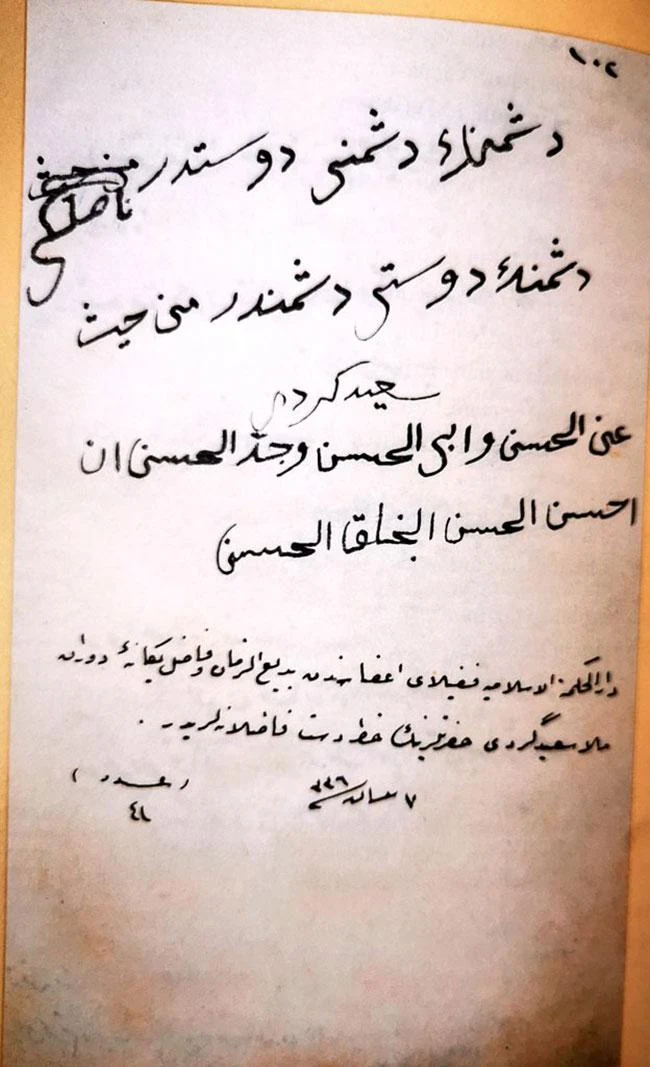 ١٠٢
دشمنڭ دشمنى دوستدر من حيث
دشمنڭ دوستى دشمندر من حيث
سعيد كردى
عن الحسن وابى الحسن وجد الحسن ان
احسن الحسن الخلق الحسن
دار الحكمة الاسلاميه فضلاى اعضاسندن بديع الزمان وفاضل يگانهٔ دوران
ملا سعيد كردى حضرتلرينك خط دست فاضلانه لريدر .
٧ نيسان سنه ٣٣٦
( عدد )
٤٨